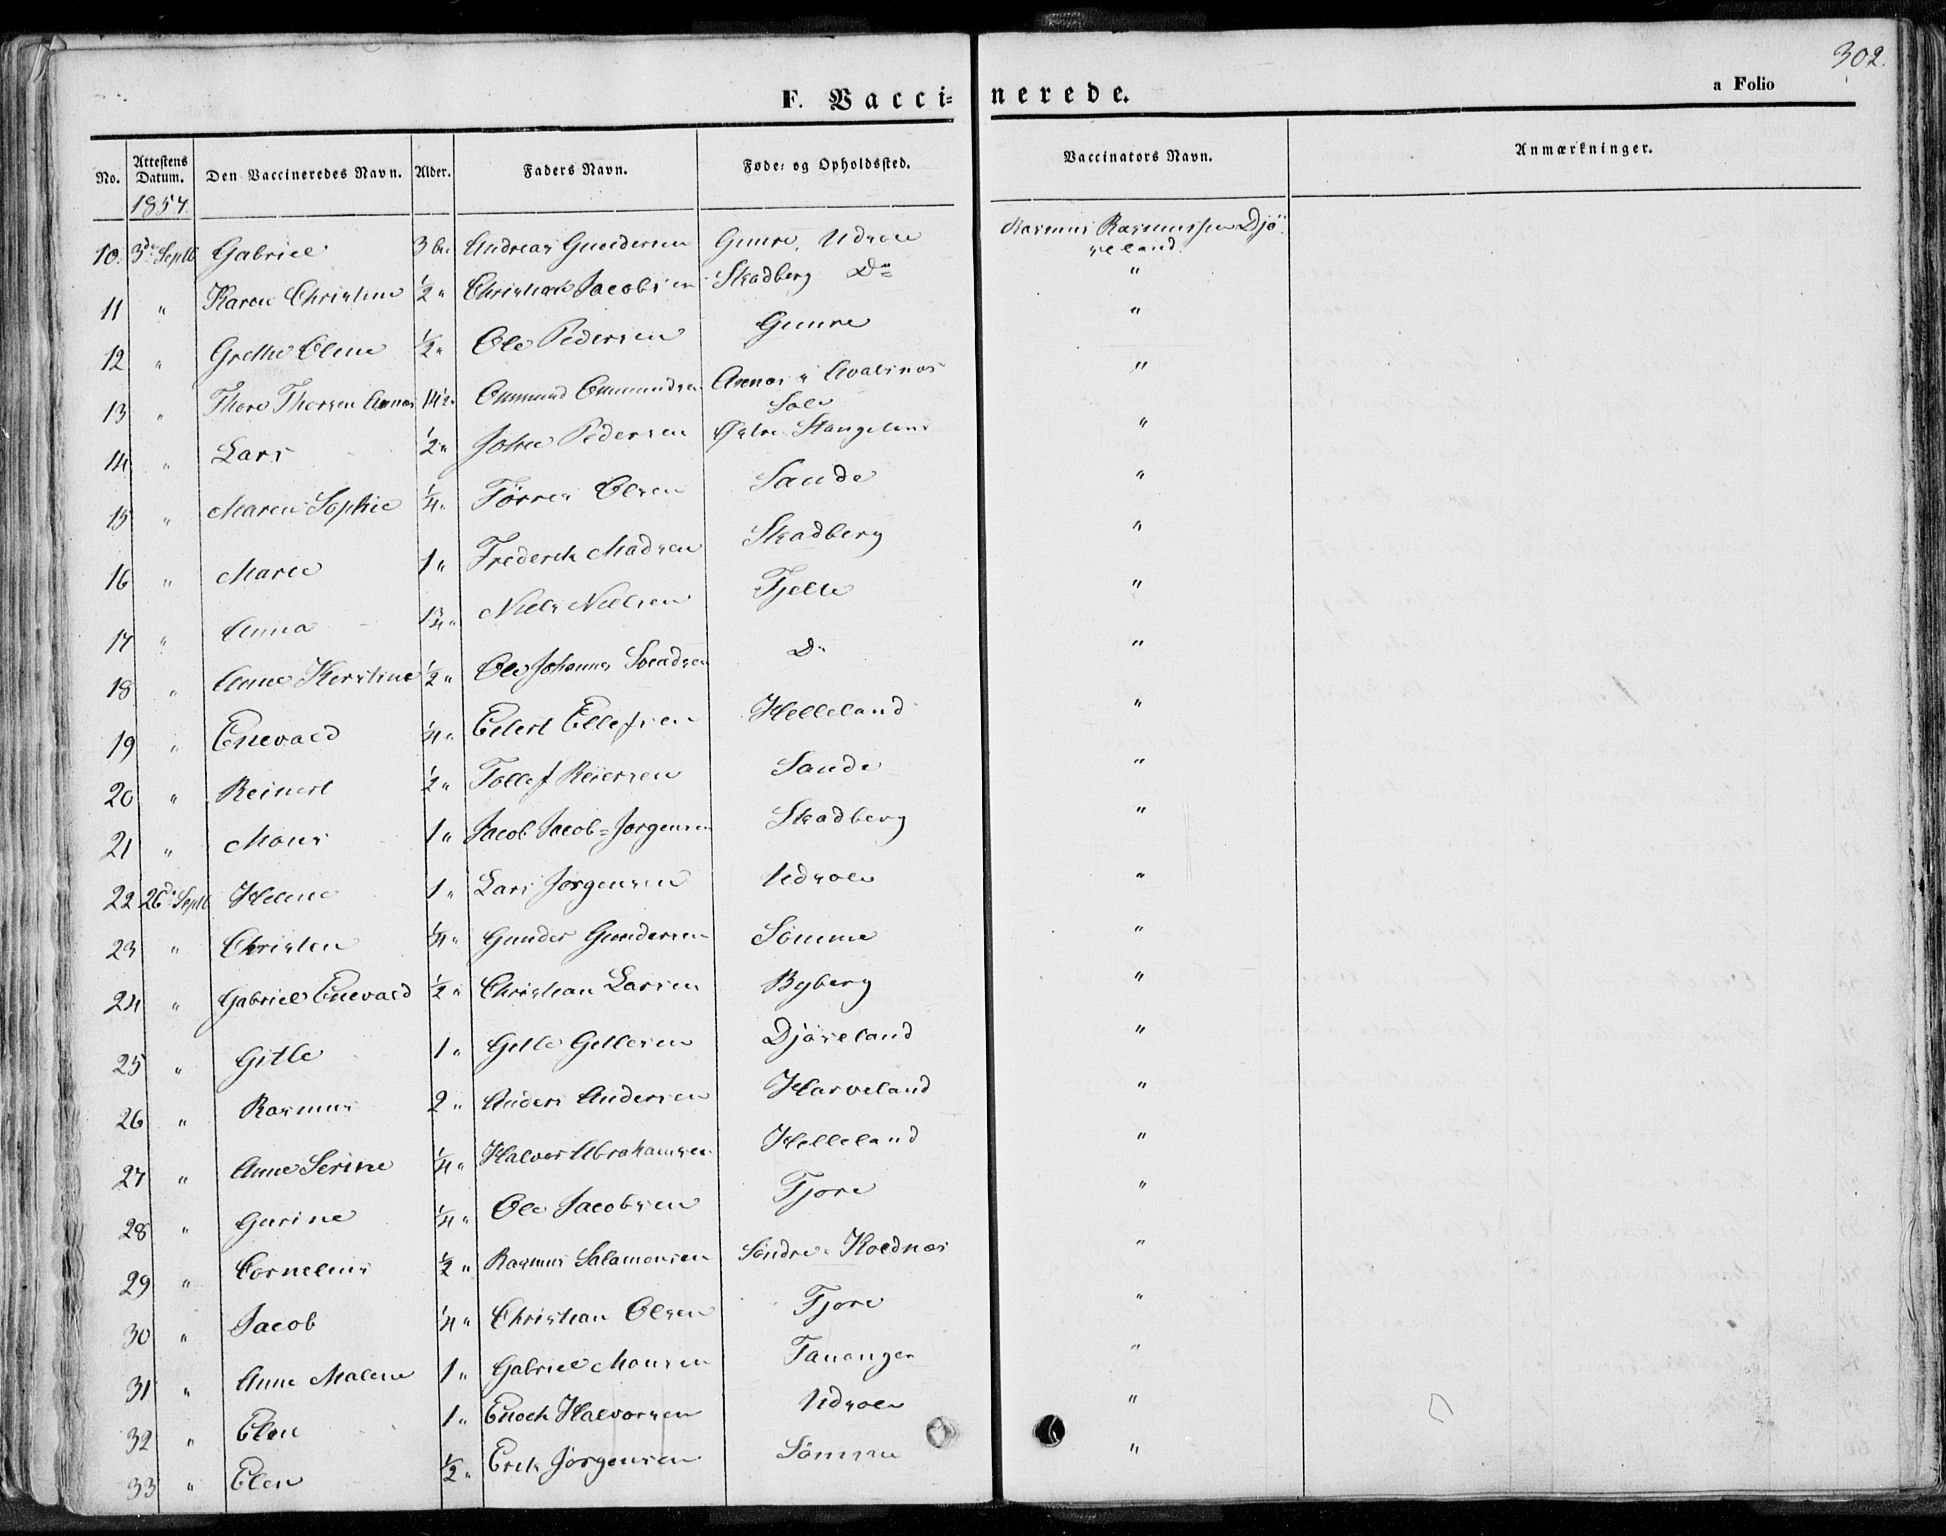 302.
F. Vaccinerede.
a Folio
No. Attestens Datum. Den Vaccineredes Navn. Alder. Faders Navn. Føde- og Opholdssted. Vaccinators Navn. Anmærkninger.
1857.
10. 3d Septb Gabriel 3 Andreas Gundersen Gimre, Udsole Rasmus Rasmussen Djö-
reland.
11 " Karen Christine ½ " Christian Jacobsen Skadberg Do "
12 " Grethe Oline ½ " Ole Pedersen Gimre "
13 " Thore Thorsen Aanes 14½ " Ommund Ommundsen Aanes i "
Sole
14 " Lars ½ " John Pedersen Østre Stangeland "
15 " Maren Sophie ¼ " Törres Olsen Sande "
16 " Maren 1 " Frederik Madsen Skadberg "
17 " Anna 1¾ " Niels Nielsen Fjelle "
18 " Anne Kirstine ½ " Ole Johannes Svendsen Do "
19 " Enevald ¼ " Eilert Ellefsen Helleland "
20 " Reinert ½ " Tollef Reiersen Sande "
21 " Mons 1 " Jacob Jacob=Jorgensen Skadberg "
22 26d Septb Helene 1 " Lars Jorgensen Udsole "
23 " Christen ¼ " Gunder Gundersen Sömme "
24 " Gabriel Enevald ½ " Christian Larsen Byberg "
25 " Gitle 1 " Gitle Gitlesen Djöreland "
26 " Rasmus 2 " Anders Andersen Harveland "
27 " Anne Serine ¼ " Halvor Abrahamsen Helleland "
28 " Gurine ¼ " Ole Jacobsen Tjore "
29 " Cornelius ½ " Rasmus Salamonsen Söndre Koldnæs "
30 " Jacob ¼ " Christian Olsen Tjore "
31 " Anne Malene 1 " Gabriel Monsen Tananger "
32 " Elen 1 " Enoch Halvorsen Udsole "
33 " Elen ½ " Erik Jorgensen Sömme "